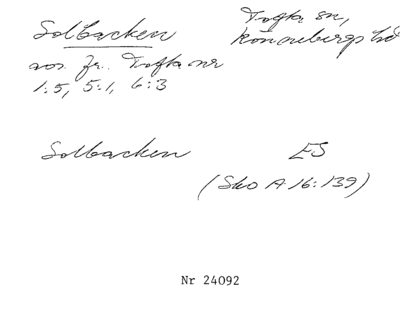 Solbacken
Tofta sn,
Rönnebergs hd
avs. fr. Tofta nr
1:5, 5:1, 6:3
Solbacken
ES
(Sko A 16:139)
Nr 24092